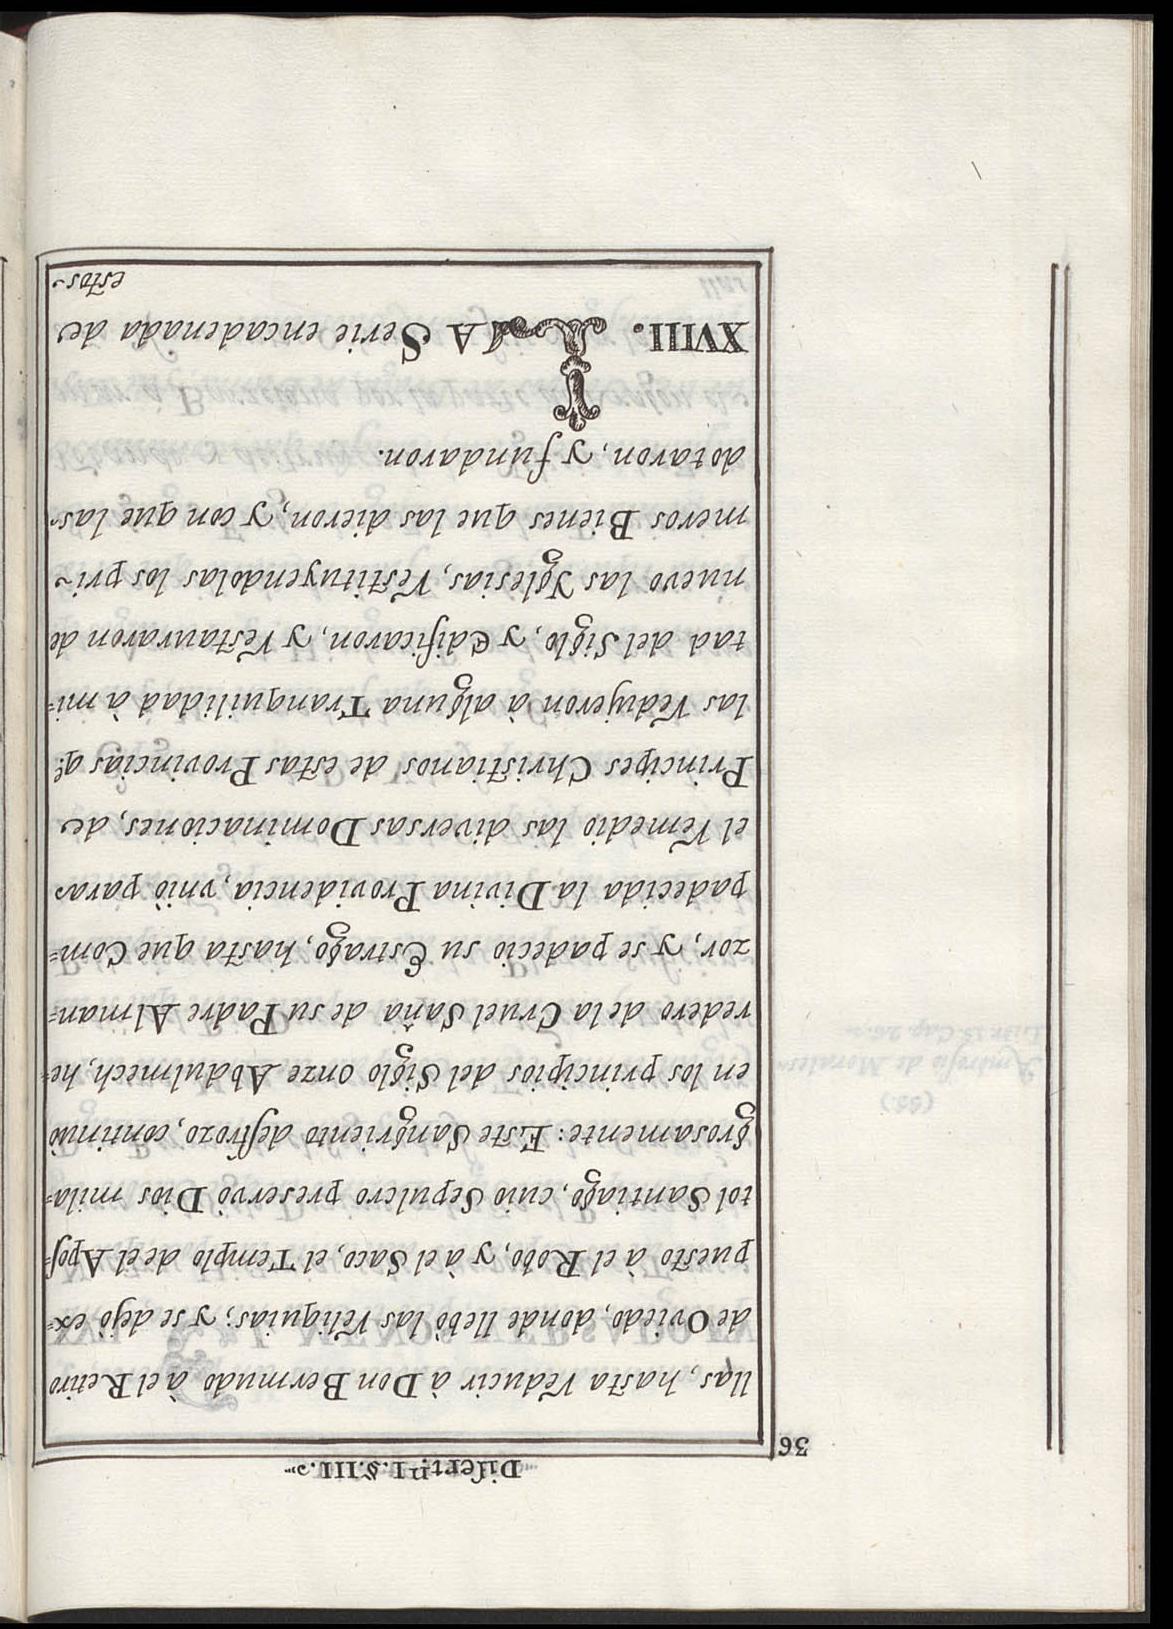 Disert.ⁿ I. §. III.
36
llas, hasta reducir à Don Bermudo à el Retiro
de Oviedo, donde llebò las reliquias; y se dejò ex=
puesto à el Robo, y à el Saco, el Templo de el Apos=
tol Santiago, cuio Sepulcro preservò Dios mila=
grosamente: Este Sangriento destrozo, continuò
en los principios del Siglo onze Abdulmech, he=
redero de la Cruel Saña de su Padre Alman=
zor, y se padecio su Estrago, hasta que Com=
padecida la Divina Providencia, vniò para
el remedio las diversas Dominaciones, de
Principes Christianos de estas Provincias q.ᵉ
las redujeron à alguna Tranquilidad à mi=
tad del Siglo, y Edificaron, y restauraron de
nuevo las Yglesias, restituyendolas los pri-
meros Bienes que las dieron, y con que las
dotaron, y fundaron.
XVIII. LA Serie encadenada de
estos